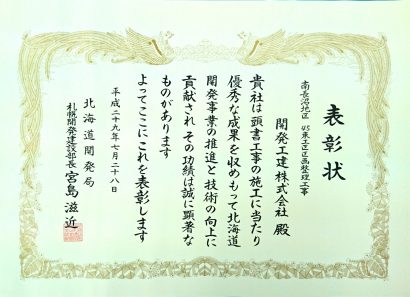 表彰状
南長沼地区 45東工区区画整理工事
開発工建株式会社 殿
貴社は頭書工事の施工に当たり
優秀な成果を収めもって北海道
開発事業の推進と技術の向上に
貢献されその功績は誠に顕著な
ものがあります
よってここにこれを表彰します
平成二十九年七月二十八日
北海道開発局
札幌開発建設部長 宮島滋近